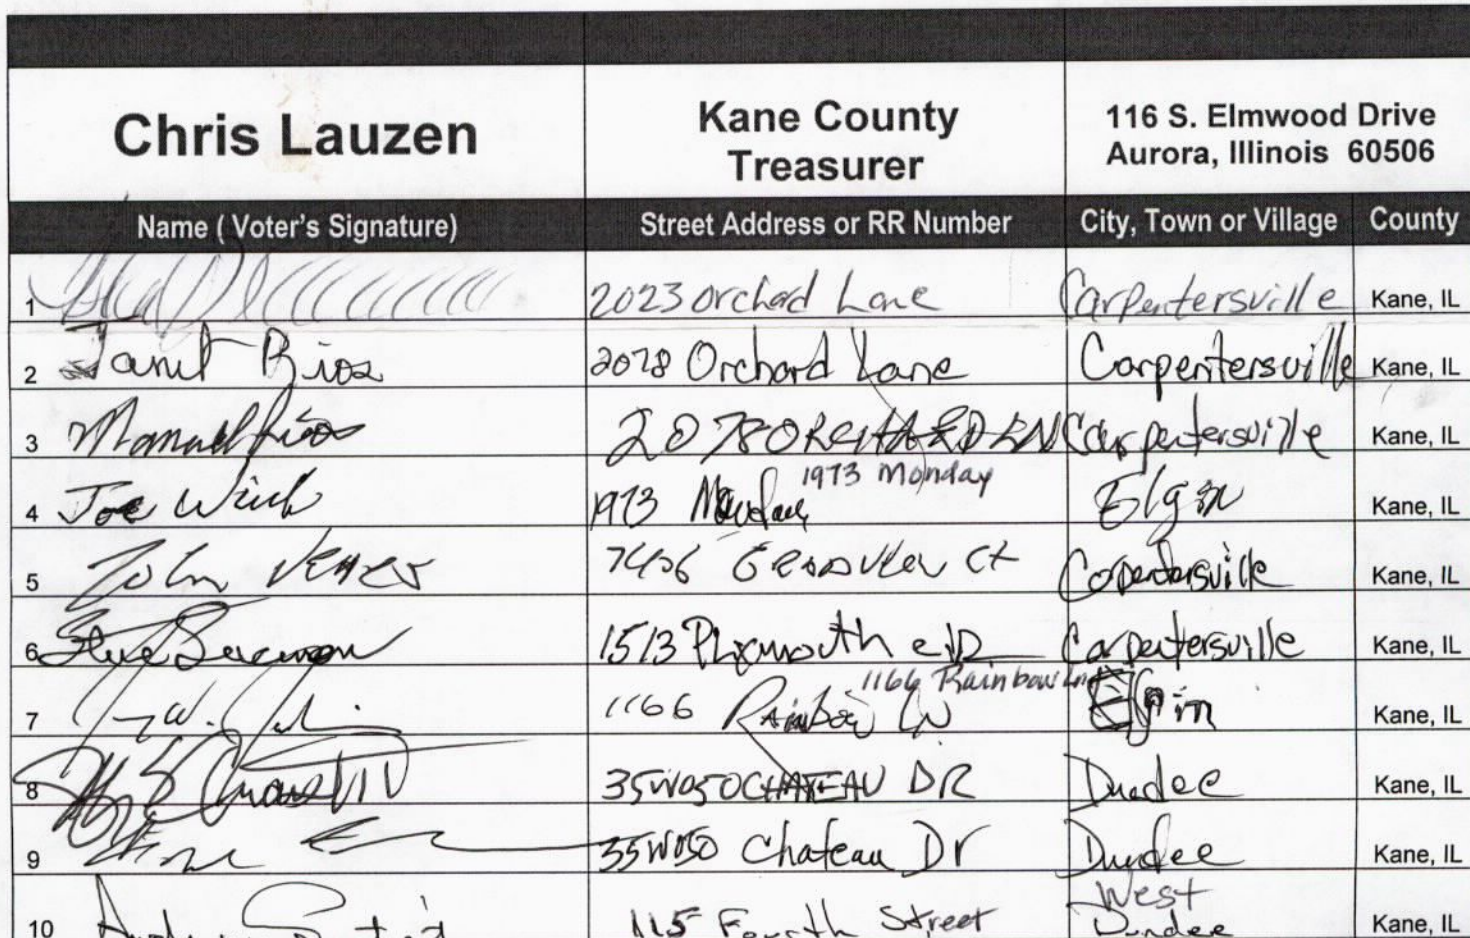 Chris Lauzen
Kane County
Treasurer
116 S. Elmwood Drive
Aurora, Illinois 60506
Name ( Voter's Signature) Street Address or RR Number City, Town or Village County
1 2023 Orchard Lane Carpentersville Kane, IL
2 Janet Rios 2078 Orchard Lane Carpentersville Kane, IL
3 Manuel Rios 2078 ORCHARD LN Carpentersville Kane, IL
1973 Monday
4 Joe 1973 Elgin Kane, IL
5 John Ct Carpentersville Kane, IL
6 Steve 1513 Plymouth Carpentersville Kane, IL
1166 Rainbow Ln
7 1166 Rainbow LN Elgin Kane, IL
8 35W050 CHATEAU DR Dundee Kane, IL
9 35W050 Chateau Dr Dundee Kane, IL
West
10 115 Fourth Street Dundee Kane, IL